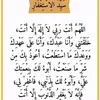 سيد الاستغفار
اللَّهُمَّ أَنْتَ رَبِّي لَا إِلَهَ إِلَّا أَنْتَ،
خَلَقْتَنِي وَأَنَا عَبْدُكَ، وَأَنَا عَلَى عَهْدِكَ
وَوَعْدِكَ مَا اسْتَطَعْتُ، أَعُوذُ بِكَ
مِنْ شَرِّ مَا صَنَعْتُ، أَبُوءُ لَكَ بِنِعْمَتِكَ
عَلَيَّ، وَأَبُوءُ بِذَنْبِي، فَاغْفِرْ لِي،
فَإِنَّهُ لَا يَغْفِرُ الذُّنُوبَ إِلَّا أَنْتَ